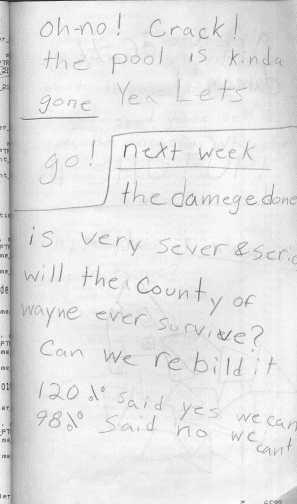 oh-no! Crack!
the pool is kinda
gone Yea Lets
go! next week
the damege done
is very sever & seri
will the County of
wayne ever survive?
Can we rebild it
120 % said yes we can
98 % Said no we
cant